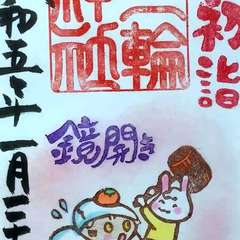 初詣
輪
社
鏡開き
和五年一月